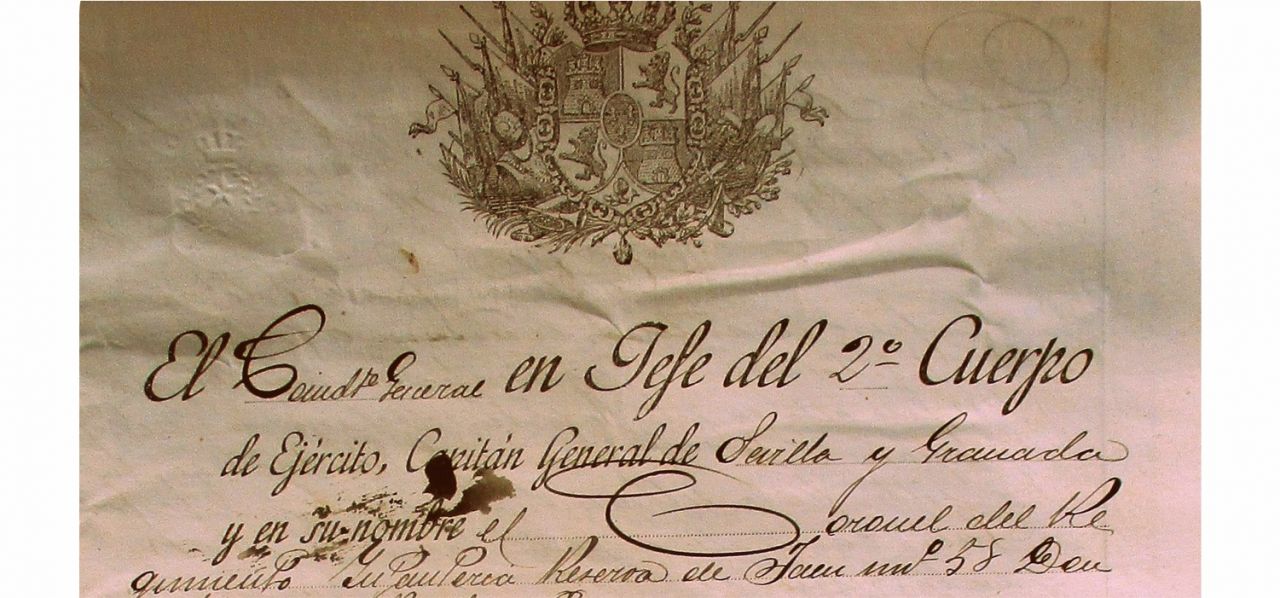 El Comdte General en Jefe del 2º Cuerpo
de Ejército, Capitán General de Sevilla y Granada
y en su nombre el Coronel del Re
gimiento Infanteria Reserva de Jaen nº 58 Don